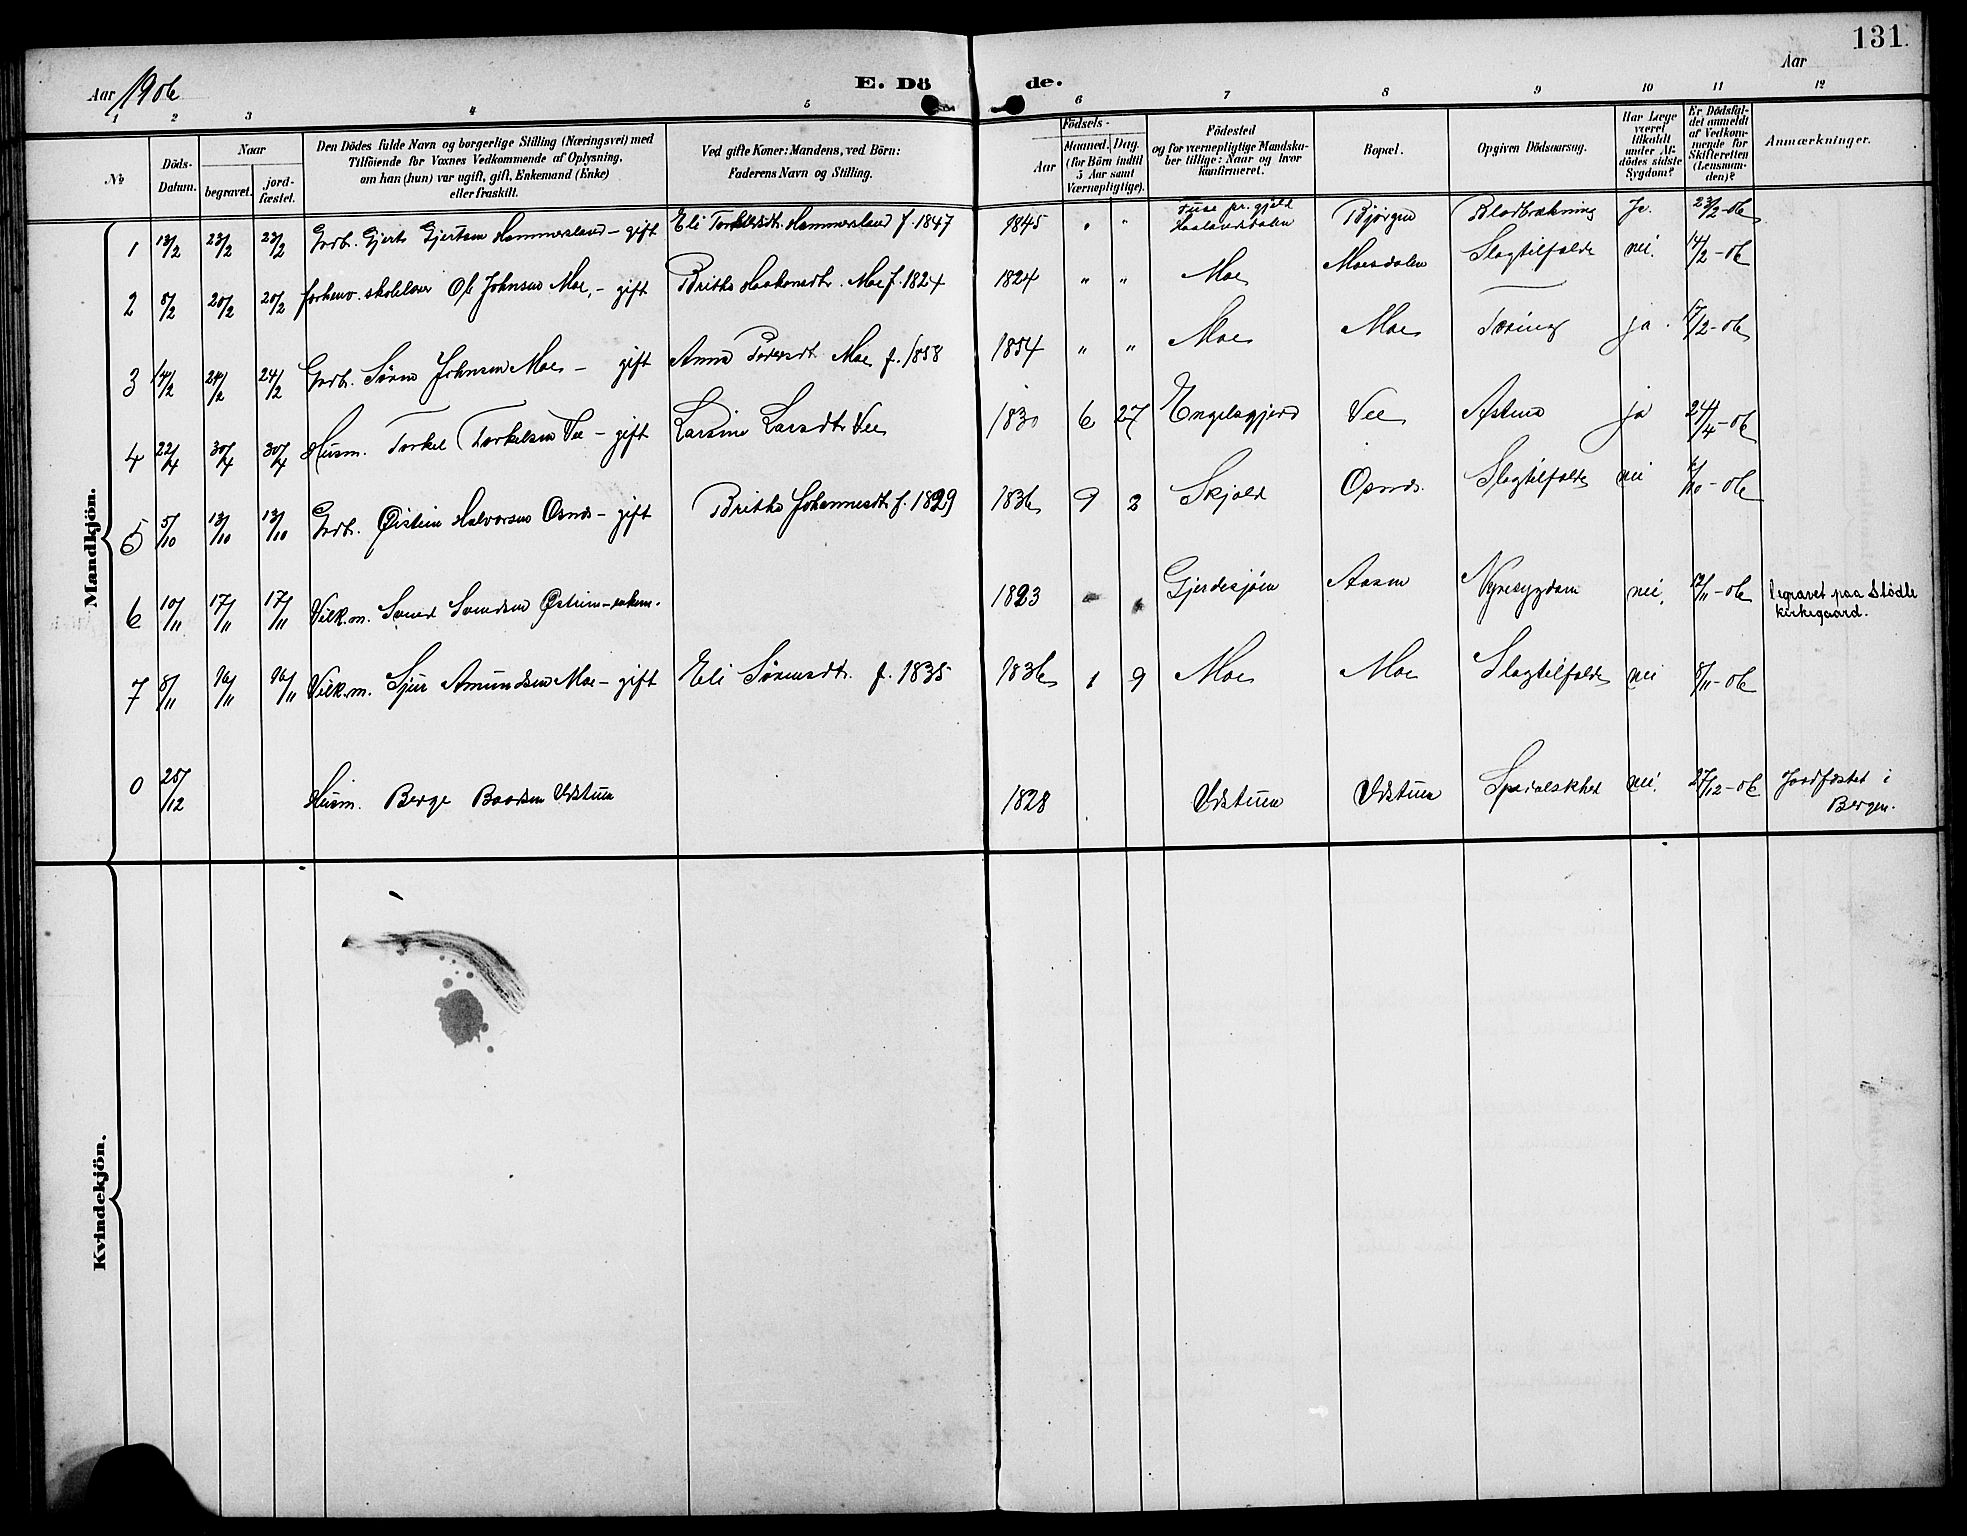 131.
Aar 1906
E. Dö
de.
Aar
1 2 3 4 5 6 7 8 9 10 11 12
№
Döds-
Datum.
Naar
begravet.
jord-
fæstet.
Den Dödes fulde Navn og borgerlige Stilling (Næringsvei) med
Tilföiende for Voxnes Vedkommende af Oplysning,
om han (hun) var ugift, gift, Enkemand (Enke)
eller fraskilt.
Ved gifte Koner: Mandens, ved Börn:
Faderens Navn og Stilling.
Födsels-
Aar
Maaned.
Dag.
(for Börn indtil
5 Aar samt
Værnepligtige).
Födested
og for værnepligtige Mandska-
ber tillige: Naar og hvor
konfirmeret.
Bopæl.
Opgiven Dödsaarsag.
Har Læge
været
tilkaldt
under Af-
dödes sidste
Sygdom?
Er Dödsfal-
det anmeldt
af Vedkom-
mende for
Skifteretten
(Lensman-
den)?
Anmærkninger.
Mandkjön.
1 13/2 23/2 23/2 Grdbr. Gjert Gjertsen Hammersland – gift Eli Hammersland f. 1847 1845 " " Fuse pr.gjeld Bjørgen Blodbrækning Ja. 23/2-06
Haalandsdalen
2 5/2 20/2 20/2 forhenv. skolelærer Ole Johnsen Moe, – gift Britha Haakonsdtr. Moe f. 1824 1824 " " Moe Moesdalen Slagtilfælde nei. 14/2-06
3 14/2 24/2 24/2 Grdbr. Søren Johnsen Moe – gift Anna Pedersdt. Moe f. 1858 1854 " " Moe Moe Tæring ja. 17/2-06
4 22/4 30/4 30/4 Husm. Torkel Torkelsen Vee – gift Larsine Larsdtr Vee 1830 6 27 Engelsgjerd Vee Astma ja 24/4-06
5 5/10 13/10 13/10 Grdbr. Øistein Halvorsen Osnes – gift Britha Johannesdt. f. 1829 1836 9 2 Skjold Osnes. Slagtilfælde nei /10-06
6 10/11 17/11 17/11 Vilk.m. Svend Svendsen Østrim – enkem. 1823 " " Gjerdesjøen Aasen Nyresygdom nei. 12/11-06 begravet paa Stødle
kirkegaard.
7 8/11 16/11 16/11 Vilk.m. Sjur Amundsen Moe – gift Eli Sørensdtr. f. 1835 1836 1 9 Moe Moe Slagtilfælde nei 8/11-06
0 25/12 Husm. Berge Baardsen Østuen 1828 Østuen Østuen Spedalskhed nei. 27/12-06 Jordfæstet i
Bergen.
Kvindekjön.